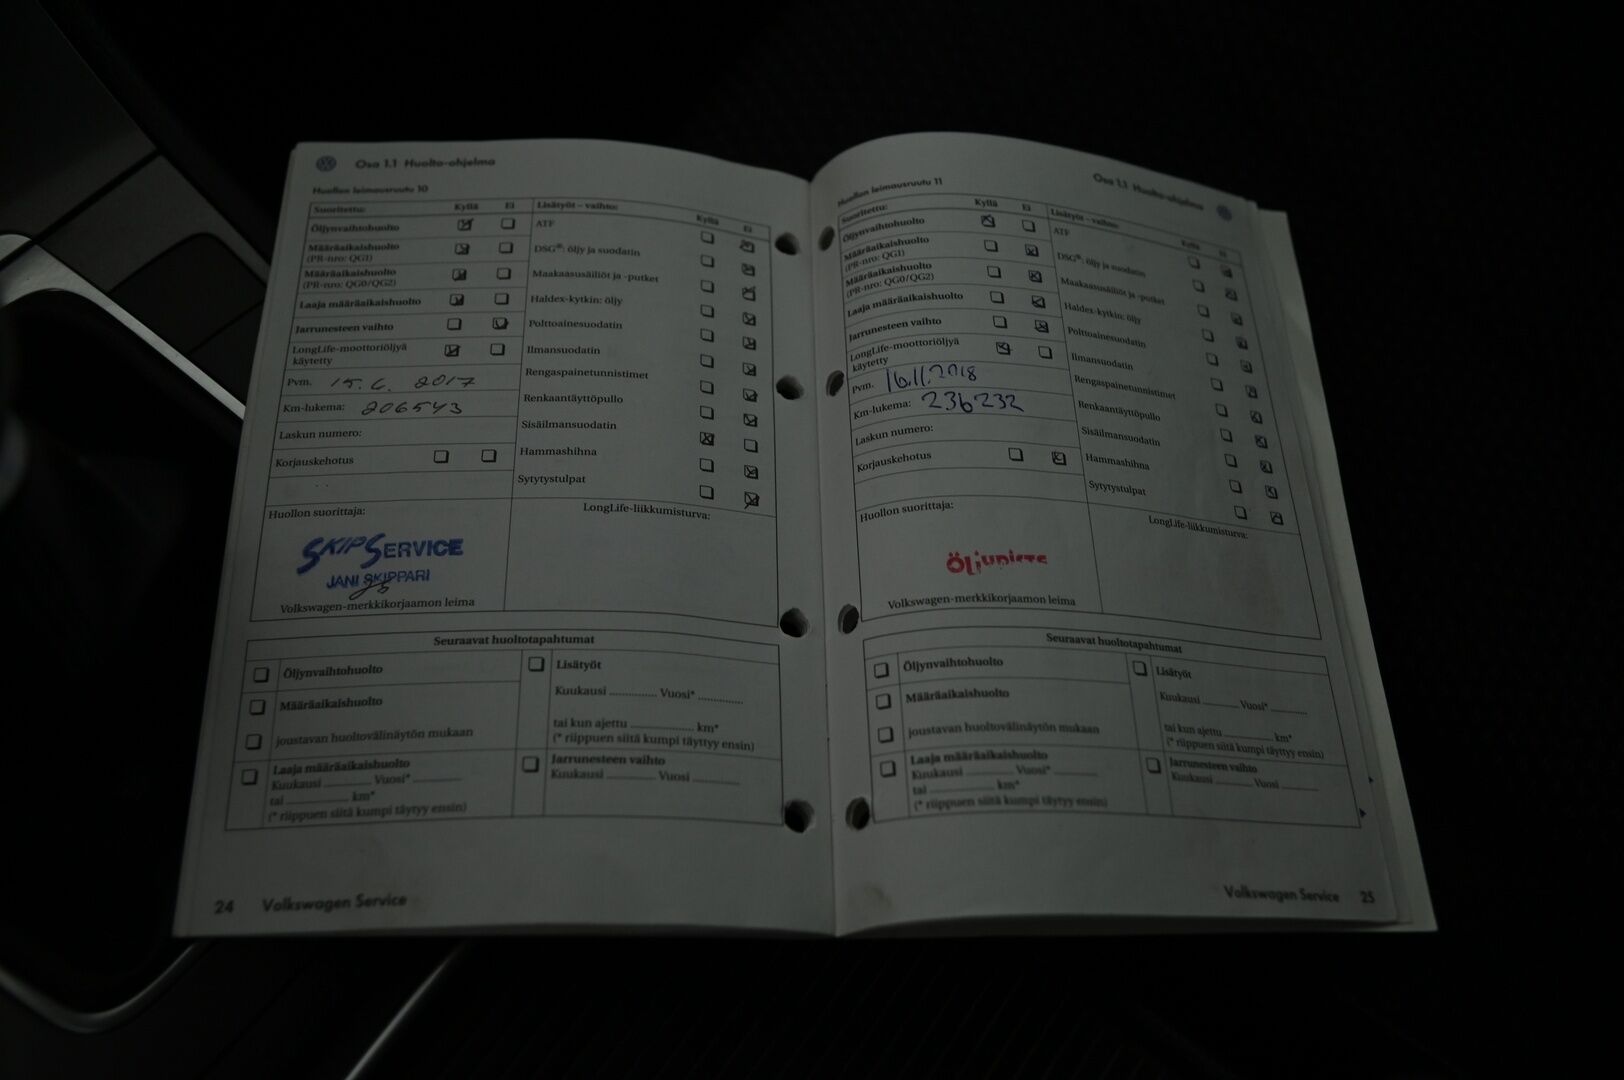 Osa 1.1 Huolto-ohjelma
Huollon leimausruutu 10
Suoritettu: Kyllä Ei
Öljynvaihtohuolto
Määräaikaishuolto
(PR-nro: QG1)
Määräaikaishuolto
(PR-nro: QG0/QG2)
Laaja määräaikaishuolto
Jarrunesteen vaihto
LongLife-moottoriöljyä
käytetty
Pvm. 15.6. 2017
Km-lukema: 206543
Laskun numero:
Korjauskehotus
Lisätyöt – vaihto: Kyllä Ei
ATF
DSG®: öljy ja suodatin
Maakaasusäiliöt ja -putket
Haldex-kytkin: öljy
Polttoainesuodatin
Ilmansuodatin
Rengaspainetunnistimet
Renkaantäyttöpullo
Sisäilmansuodatin
Hammashihna
Sytytystulpat
Huollon suorittaja:
SKIPSERVICE
JANI SKIPPARI
Volkswagen-merkkikorjaamon leima
LongLife-liikkumisturva:
Seuraavat huoltotapahtumat
Öljynvaihtohuolto
Määräaikaishuolto
joustavan huoltovälinäytön mukaan
Laaja määräaikaishuolto
Kuukausi ............ Vuosi* ............
tai ................ km*
(* riippuen siitä kumpi täytyy ensin)
Lisätyöt
Kuukausi ............ Vuosi* ............
tai kun ajettu ................ km*
(* riippuen siitä kumpi täyttyy ensin)
Jarrunesteen vaihto
Kuukausi ............ Vuosi ............
24 Volkswagen Service
Osa 1.1 Huolto-ohjelma
Huollon leimausruutu 11
Suoritettu: Kyllä Ei
Öljynvaihtohuolto
Määräaikaishuolto
(PR-nro: QG1)
Määräaikaishuolto
(PR-nro: QG0/QG2)
Laaja määräaikaishuolto
Jarrunesteen vaihto
LongLife-moottoriöljyä
käytetty
Pvm. 16.11.2018
Km-lukema: 236232
Laskun numero:
Korjauskehotus
Lisätyöt – vaihto: Kyllä Ei
ATF
DSG®: öljy ja suodatin
Maakaasusäiliöt ja -putket
Haldex-kytkin: öljy
Polttoainesuodatin
Ilmansuodatin
Rengaspainetunnistimet
Renkaantäyttöpullo
Sisäilmansuodatin
Hammashihna
Sytytystulpat
Huollon suorittaja:
Volkswagen-merkkikorjaamon leima
LongLife-liikkumisturva:
Seuraavat huoltotapahtumat
Öljynvaihtohuolto
Määräaikaishuolto
joustavan huoltovälinäytön mukaan
Laaja määräaikaishuolto
Kuukausi ............ Vuosi* ............
tai ................ km*
(* riippuen siitä kumpi täytyy ensin)
Lisätyöt
Kuukausi ............ Vuosi* ............
tai kun ajettu ................ km*
(* riippuen siitä kumpi täyttyy ensin)
Jarrunesteen vaihto
Kuukausi ............ Vuosi ............
Volkswagen Service 25